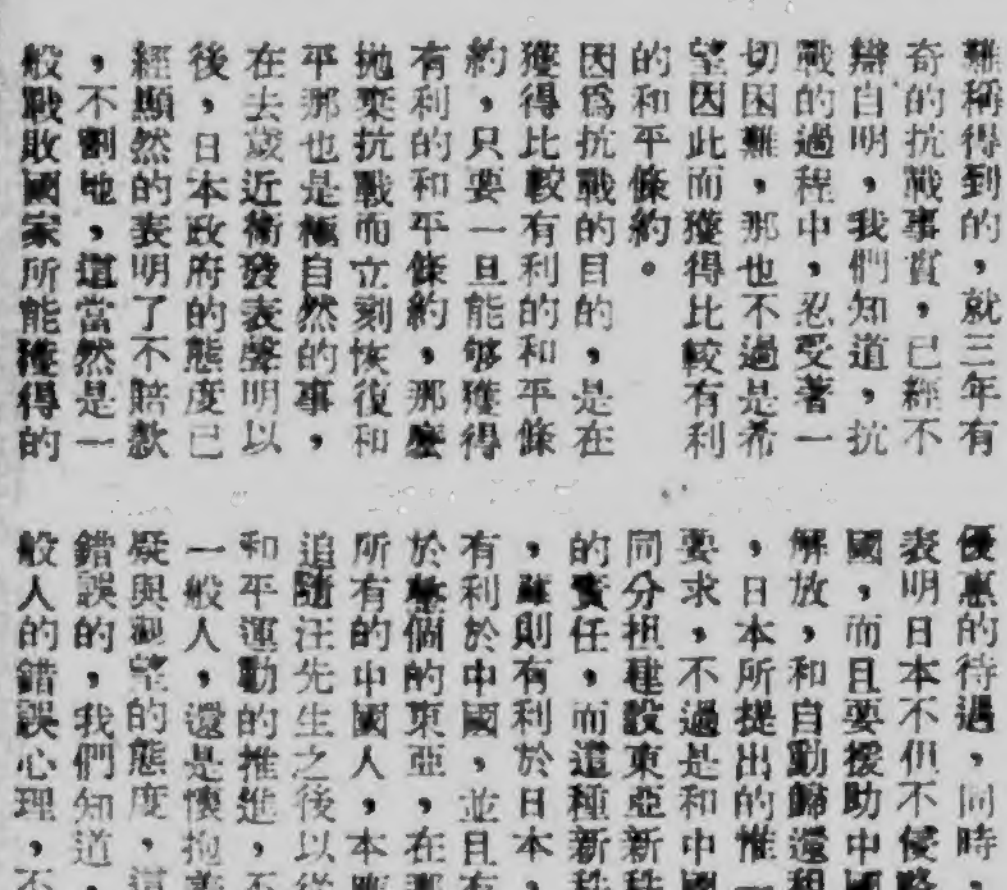 難稱得到的，就三年有
奇的抗戰事實，已經不
辯自明，我們知道，抗
戰的過程中，忍受著一
切困難，那也不過是希
望因此而獲得比較有利
的和平條約。
因爲抗戰的目的，是在
獲得比較有利的和平條
約，只要一旦能够獲得
有利的和平條約，那麼
拋棄抗戰而立刻恢復和
平那也是極自然的事，
在去歲近衛發表聲明以
後，日本政府的態度已
經顯然的表明了不賠款
，不割地，這當然是一
般戰敗國家所能獲得的
優惠的待遇，同時，
表明日本不但不侵略
國，而且要援助中國
解放，和自動歸還租
，日本所提出的惟一
要求，不過是和中國
同分担建設東亞新秩
的責任，而這種新秩
，雖則有利於日本
有利於中國，並且有
於整個的東亞，在那
所有的中國人，本應
追隨汪先生之後以從
和平運動的推進，不
一般人，還是懷抱着
疑與觀望的態度，這
錯誤的，我們知道，
般人的錯誤心理，不